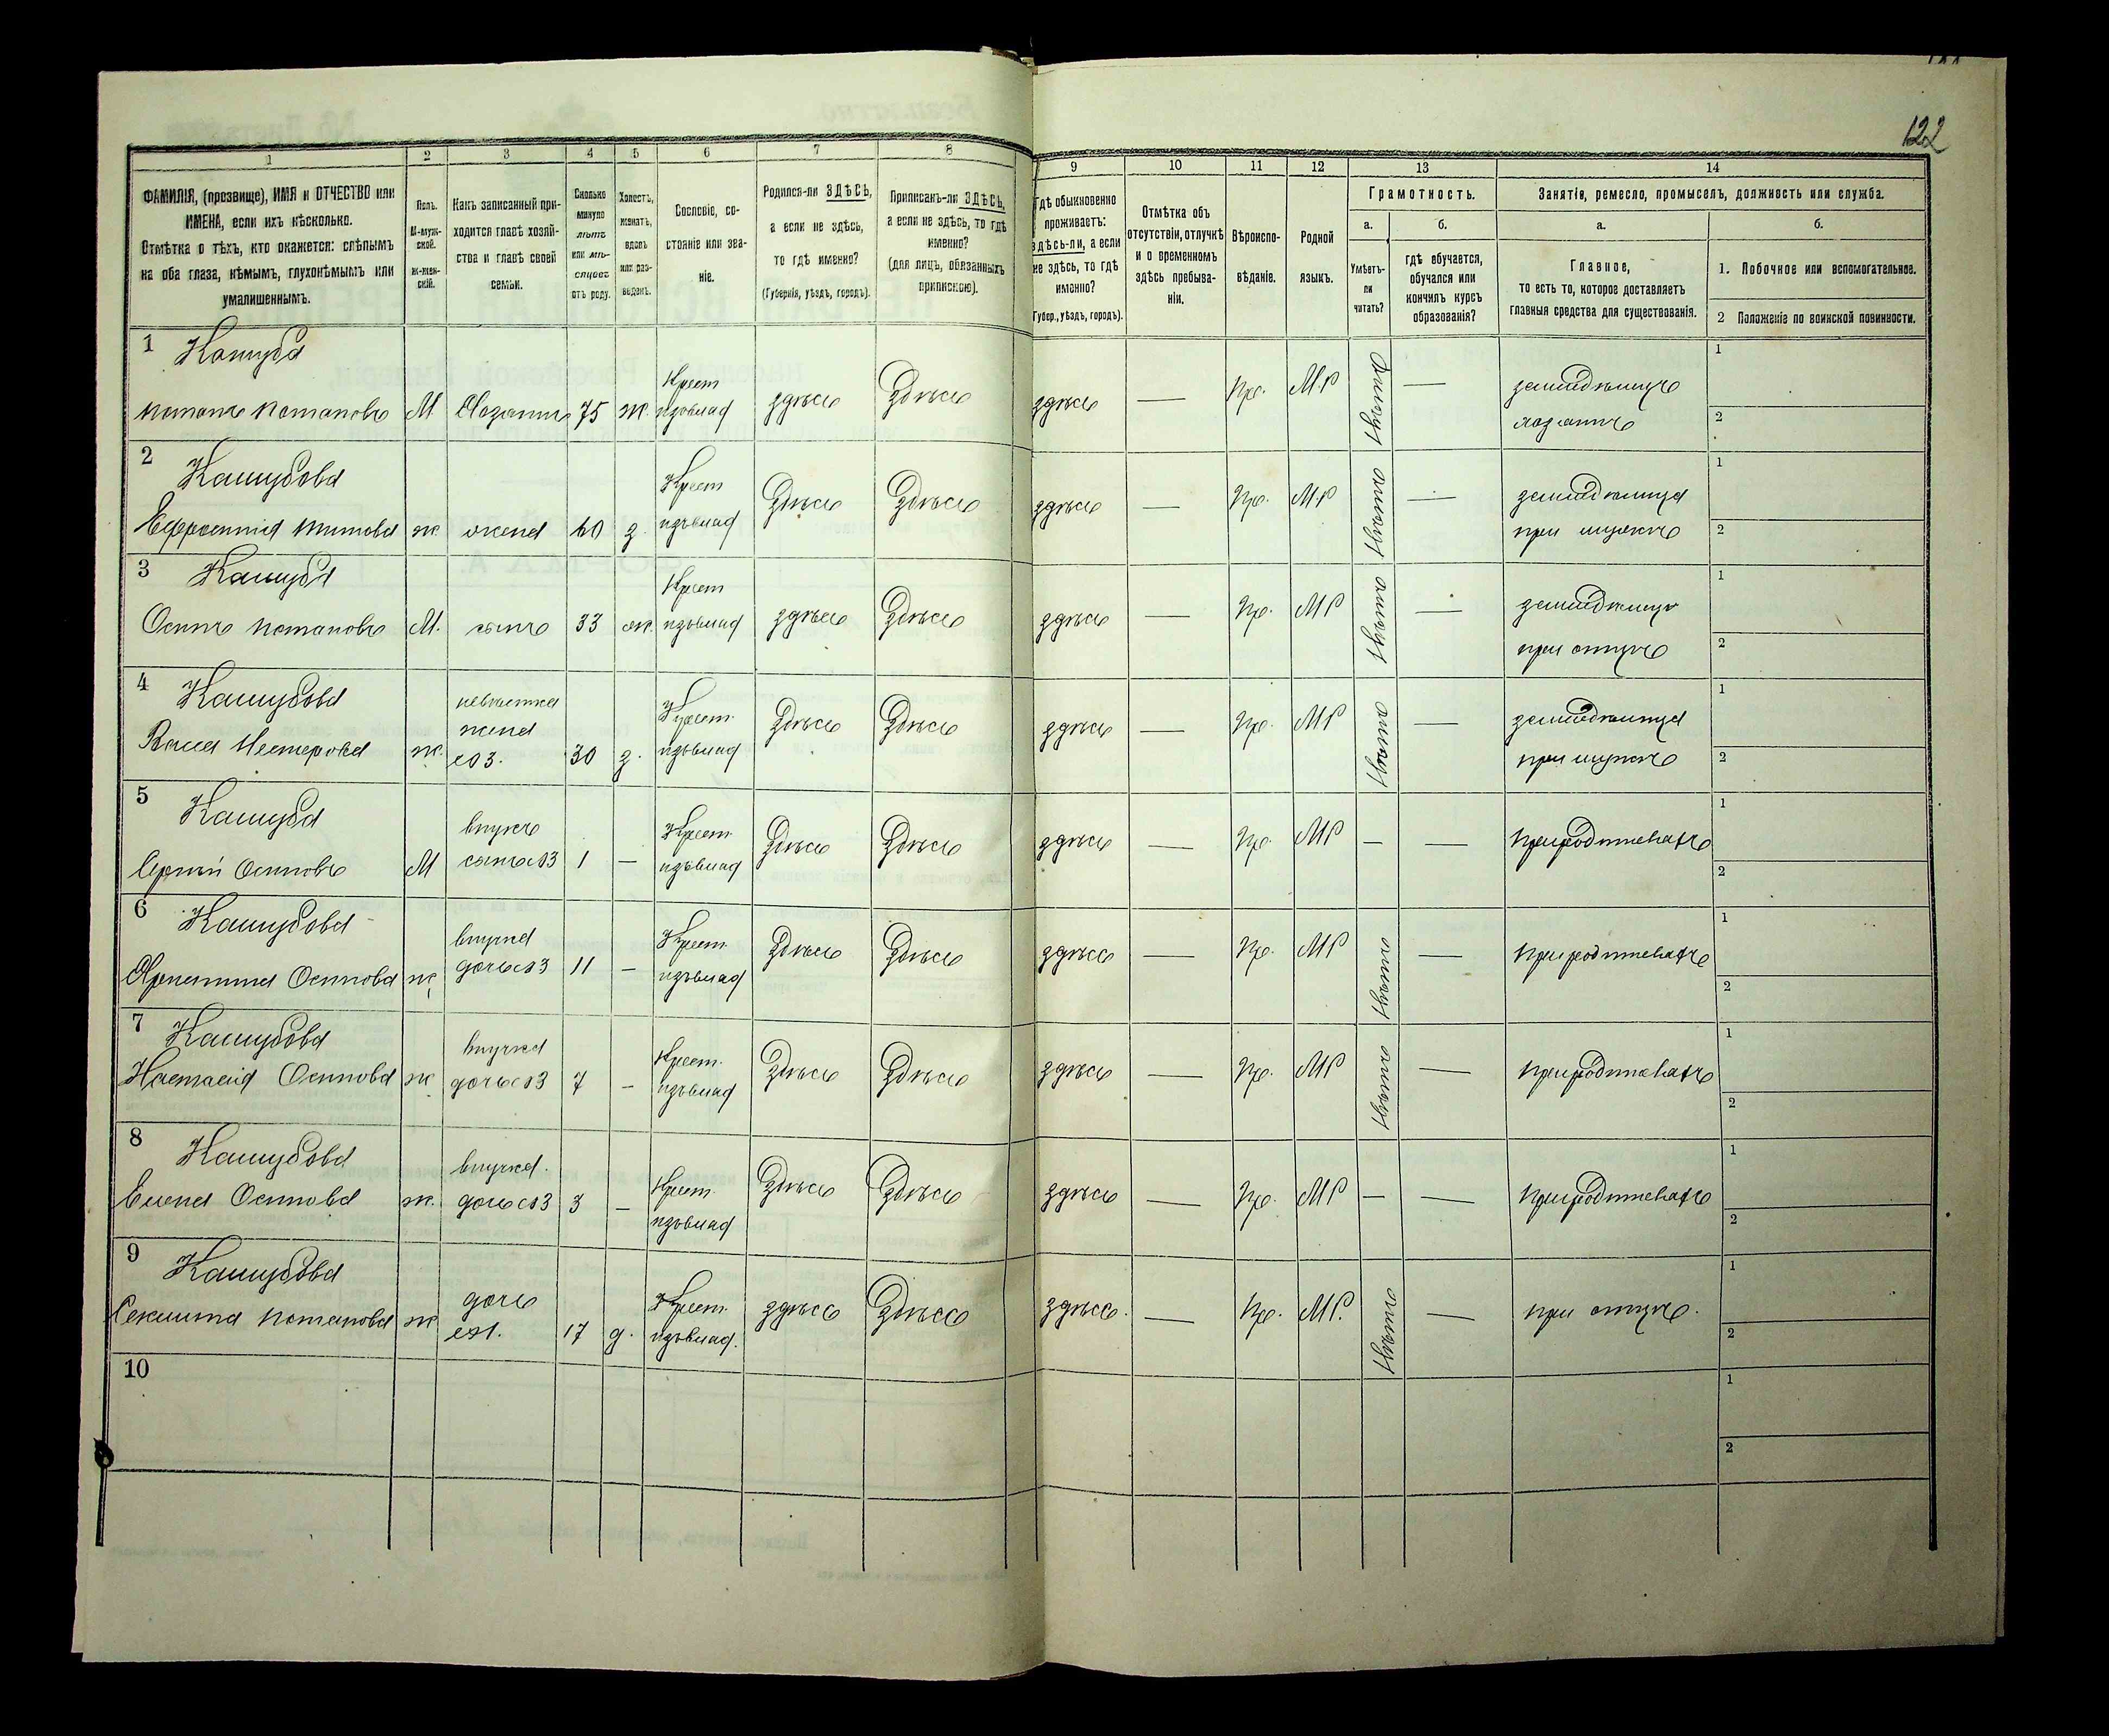 122
1 2 3 4 5 6 7 8 9 10 11 12 13 14
ФАМИЛІЯ, (прозвище), ИМЯ и ОТЧЕСТВО или
ИМЕНА, если ихъ нѣсколько.
Отмѣтка о тѣхъ, кто окажется: слѣпымъ
на оба глаза, нѣмымъ, глухонѣмымъ или
умалишеннымъ.
Полъ.
М-муж-
ской.
ж-жен-
скій.
Какъ записанный при-
ходится главѣ хозяй-
ства и главѣ своей
семьи.
Сколько
минуло
лѣтъ
или мѣ-
сяцевъ
отъ роду.
Холостъ,
женатъ,
вдовъ
или раз-
веденъ.
Сословіе, со-
стояніе или зва-
ніе.
Родился-ли ЗДѢСЬ,
а если не здѣсь,
то гдѣ именно?
(Губернія, уѣздъ, городъ).
Приписанъ-ли ЗДѢСЬ,
а если не здѣсь, то гдѣ
именно?
(для лицъ, обязанныхъ
припискою).
Гдѣ обыкновенно
проживаетъ:
здѣсь-ли, а если
не здѣсь, то гдѣ
именно?
(Губер., уѣздъ, городъ).
Отмѣтка объ
отсутствіи, отлучкѣ
и о временномъ
здѣсь пребыва-
ніи.
Вѣроиспо-
вѣданіе.
Родной
языкъ.
Грамотность.
а. б.
Умѣетъ-
ли
читать?
гдѣ обучается,
обучался или
кончилъ курсъ
образованія?
Занятія, ремесло, промыселъ, должность или служба.
а. б.
Главное,
то есть то, которое доставляетъ
главныя средства для существованія.
1. Побочное или вспомогательное.
2 Положеніе по воинской повинности.
1 Кашуба Крест 1
Потапъ Потаповъ М Хозяинъ 75 ж. изъвлад здѣсь Здѣсь здѣсь — Пр. М.Р — земледѣлецъ
хозяинъ 2
2 Кашубова Крест 1
Ефросинія Титова ж. жена 60 з. изъвлад Здѣсь Здѣсь здѣсь — Пр. М.Р — земледѣлица
при мужѣ 2
3 Кашуба Крест 1
Осипъ Потаповъ М. сынъ 33 ж. изъвлад здѣсь Здѣсь здѣсь — Пр. МР — земледѣлецъ
при отцѣ 2
4 Кашубова невѣстка Крест. 1
Васса Нестерова ж. жена 30 з. изъвлад Здѣсь Здѣсь здѣсь — Пр. МР — земледѣлица
сз 3. при мужѣ 2
5 Кашуба внукъ Крест. 1
Сергѣй Осиповъ М сынъ сз 3 1 — изъвлад Здѣсь Здѣсь здѣсь — Пр. МР — — при родителяхъ 2
6 Кашубова внучка Крест. 1
Осипова ж. дочь сз 3 11 — изъвлад Здѣсь Здѣсь здѣсь — Пр. МР — при родителяхъ 2
7 Кашубова внучка Крест. 1
Настасія Осипова ж дочь сз 3 7 — изъвлад Здѣсь Здѣсь здѣсь — Пр. МР — при родителяхъ 2
8 Кашубова внучка. Крест. 1
Елена Осипова ж. дочь сз 3 3 — изъвлад Здѣсь Здѣсь здѣсь — Пр. МР — — при родителяхъ 2
9 Кашубова дочь Крест. 1
Потапова ж сз 1. 17 д. изъвлад. здѣсь Здѣсь здѣсь. — Пр. МР. — при отцѣ. 2
10 1
2